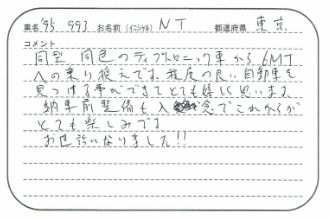 車名 '95 993 お名前(イニシャル) NT 都道府県 東京
コメント
同型、同色のティプトロニック車から6MT
への乗り換えです。程度の良い自動車を
見つける事ができてとても嬉しく思います。
納車前整備も入念でこれからが
とても楽しみです。
お世話になりました!!